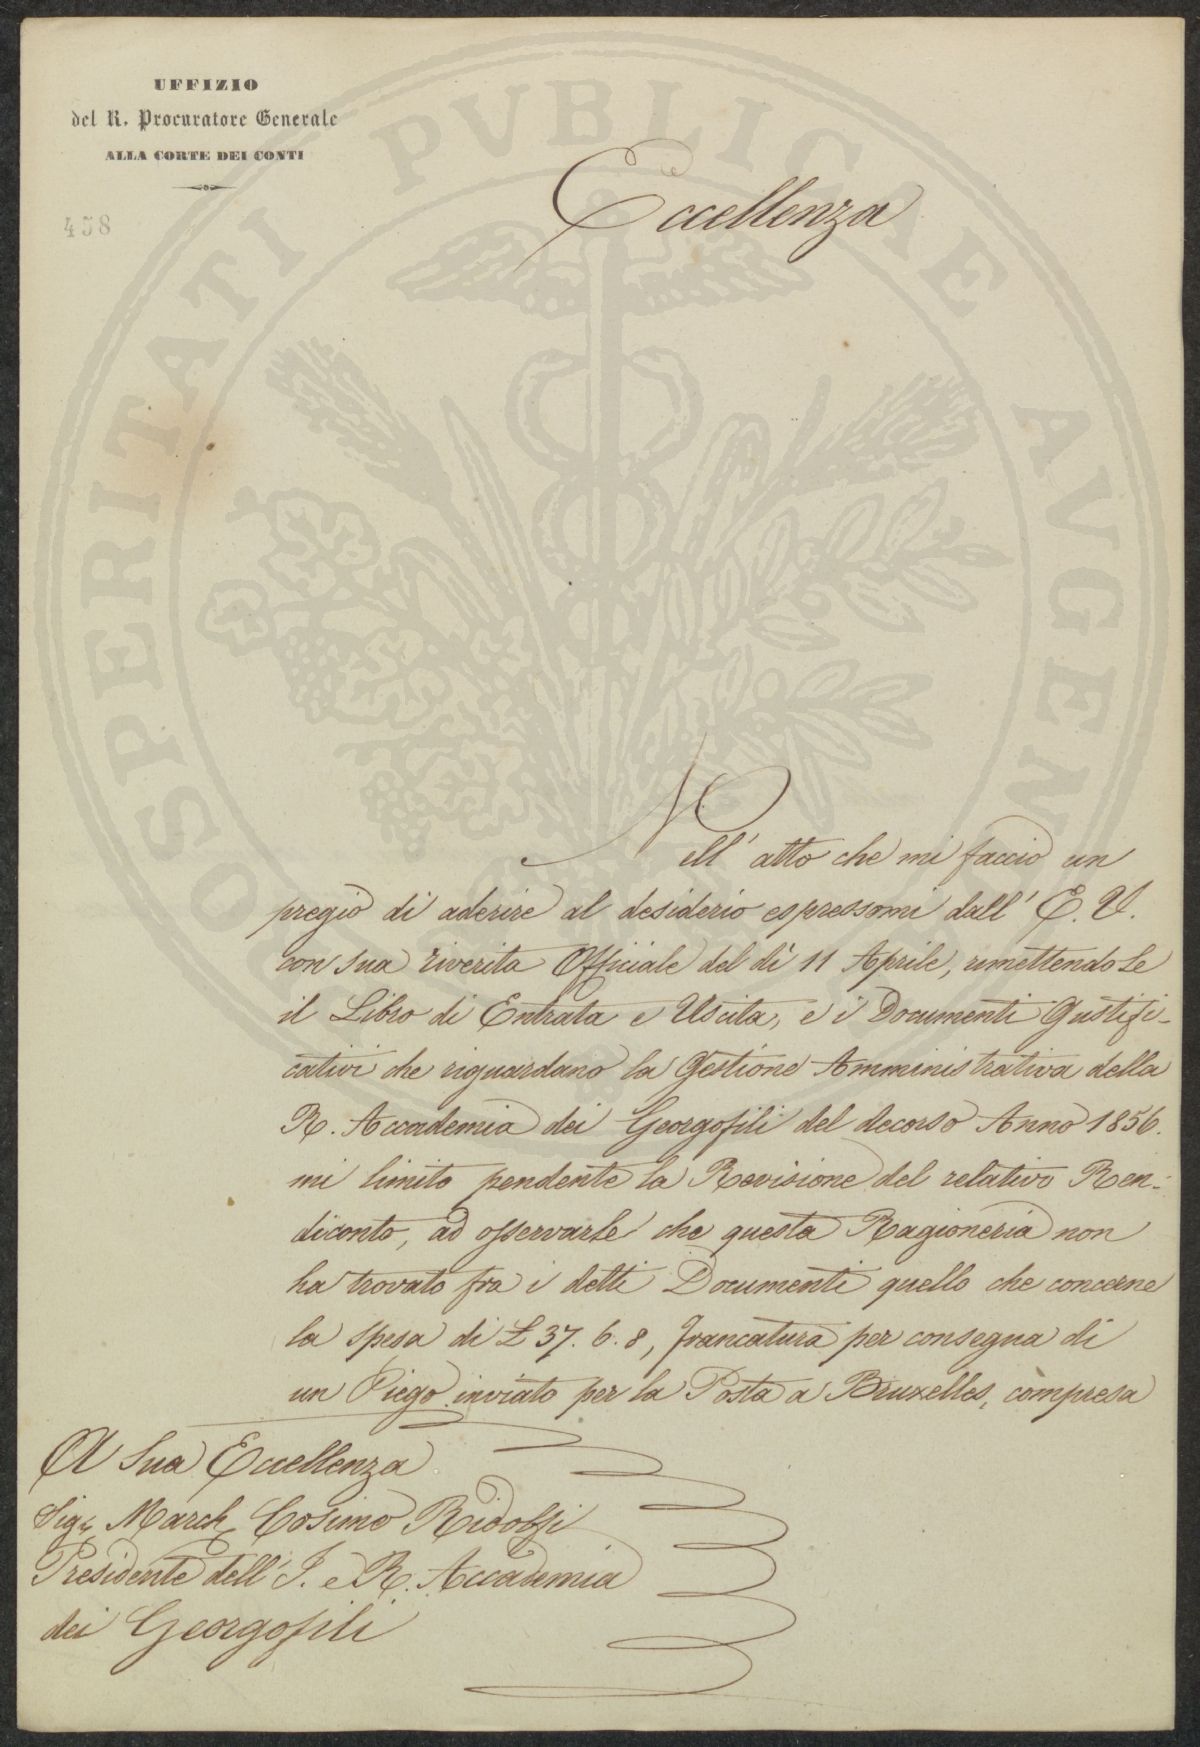 UFFIZIO
del R. Procuratore Generale
ALLA CORTE DEI CONTI
458
Eccellenza
Nell' atto che mi faccio un
pregio di aderire al desiderio espressomi dall' E. V.
con sua riverita Officiale del dì 11 Aprile, rimettendole
il Libro di Entrata e Uscita, e i Documenti Gustifi-
cativi che riguardano la Gestione Amministrativa della
R. Accademia dei Georgofili del decorso Anno 1856.
mi limito pendente la Revisione del relativo Ren-
diconto, ad osservarle che questa Ragioneria non
ha trovato fra i detti Documenti quello che concerne
la spesa di £ 37. 6. 8, francatura per consegna di
un Piego inviato per la Posta a Bruxelles, compresa
A Sua Eccellenza
Sig. March. Cosimo Ridolfi
Presidente dell' I. e R. Accademia
dei Georgofili
PROSPERITATI PUBLICAE AUGEN